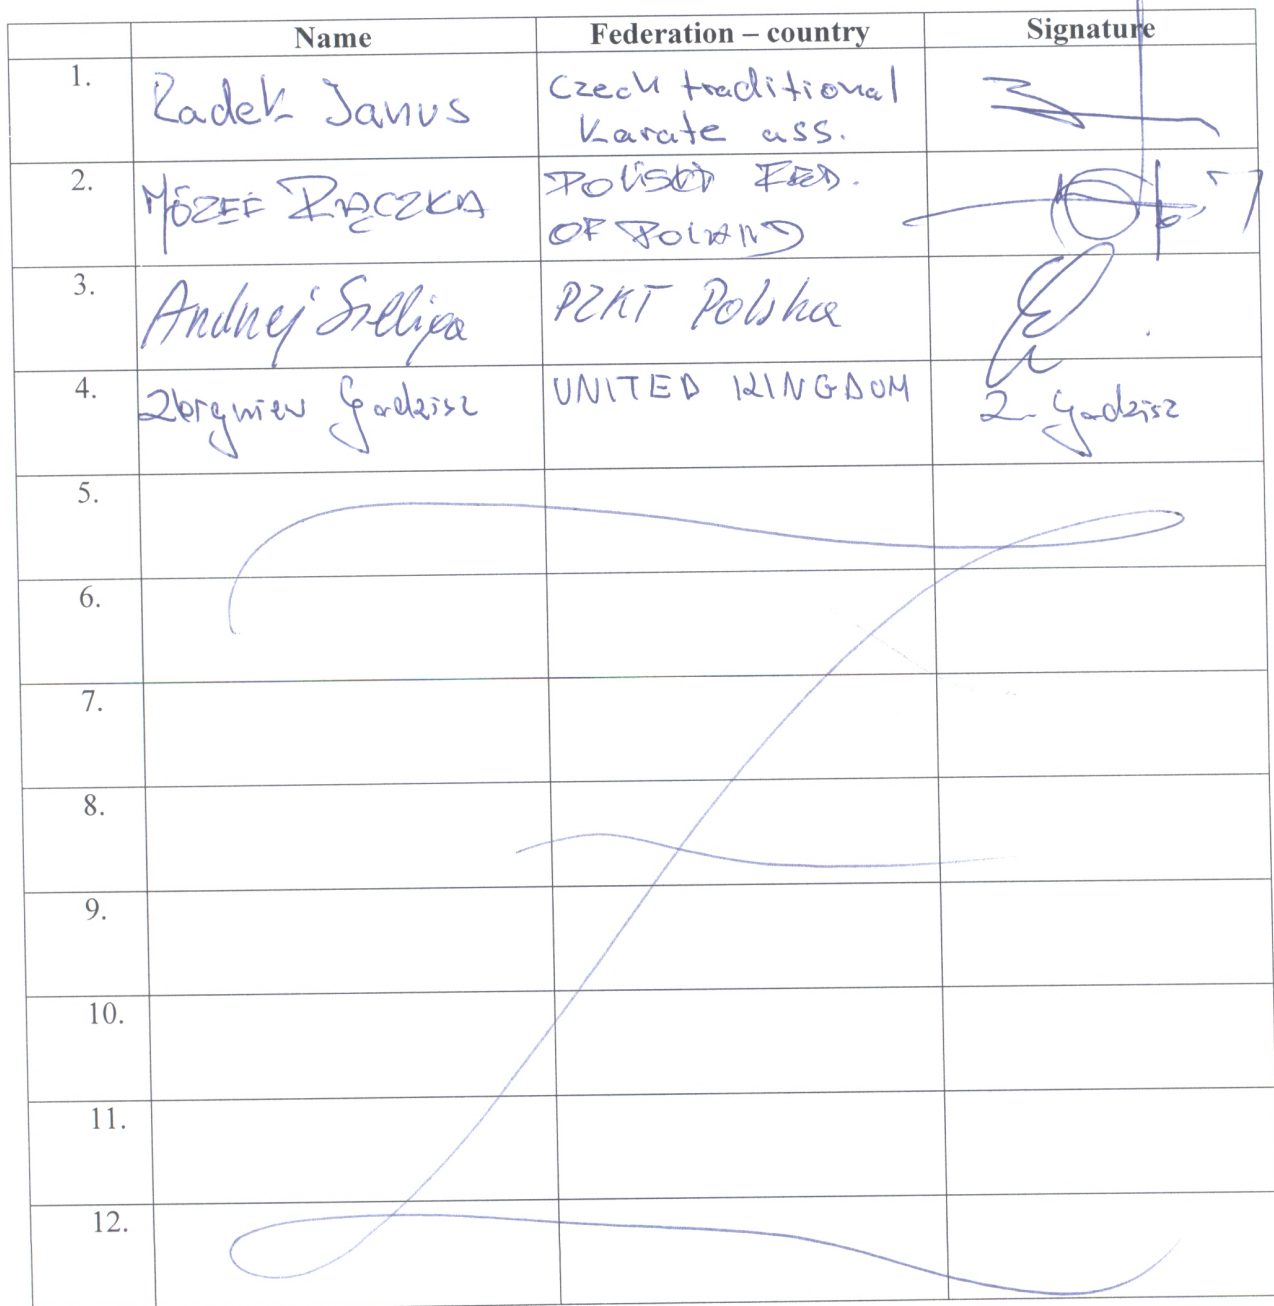 Name Federation – country Signature
1. Radek Janus Czech traditional
Karate ass.
2. JÓZEF RĄCZKA POLISH FED.
OF POLAND
3. Andrzej PZKT Polska
4. Zbigniew Gadzisz UNITED KINGDOM Z. Gadzisz
5.
6.
7.
8.
9.
10.
11.
12.